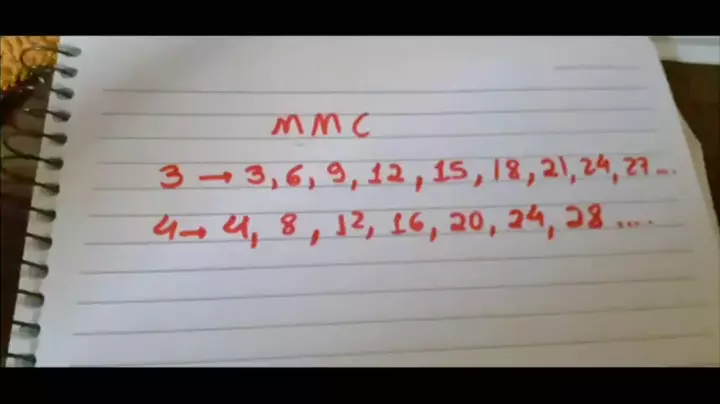 MMC
3 → 3, 6, 9, 12, 15, 18, 21, 24, 27...
4 → 4, 8, 12, 16, 20, 24, 28....